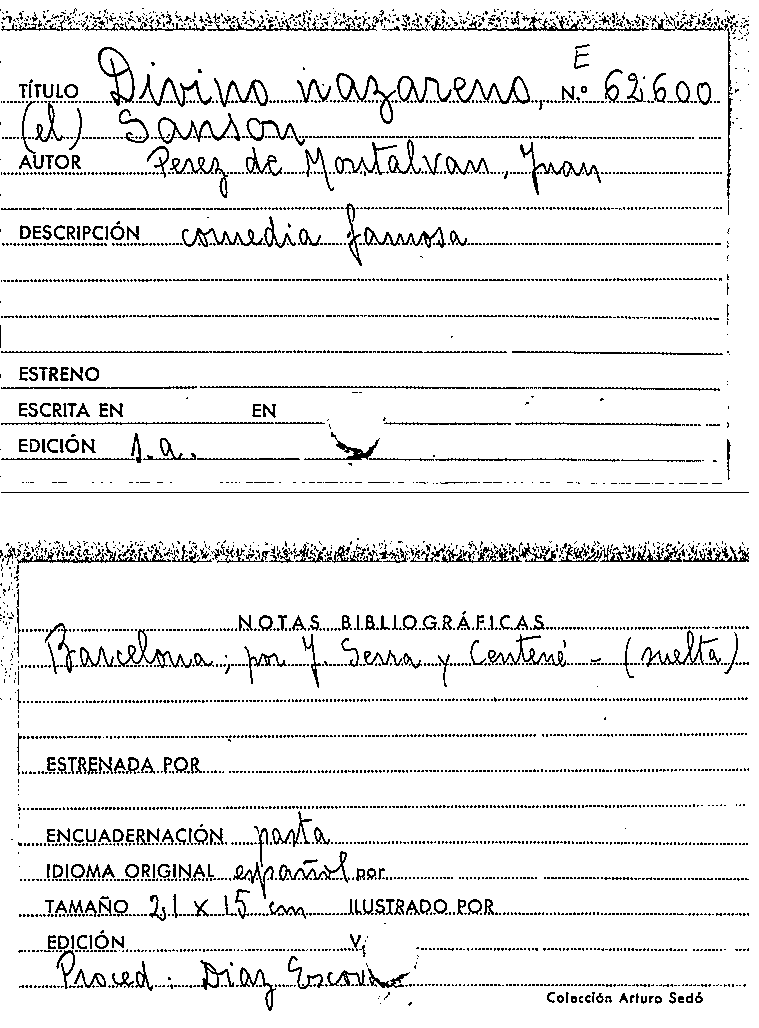 E
TÍTULO Divino nazareno, N.º 62600
(el) Sanson
AUTOR Perez de Montalvan, Juan
DESCRIPCIÓN comedia famosa
ESTRENO
ESCRITA EN EN
EDICIÓN s.a.
NOTAS BIBLIOGRÁFICAS
Barcelona; por J. Serra y Centené - (suelta)
ESTRENADA POR
ENCUADERNACIÓN pasta
IDIOMA ORIGINAL español por
TAMAÑO 21 x 15 cm ILUSTRADO POR
EDICIÓN V.
Proced: Diaz
Colección Arturo Sedó